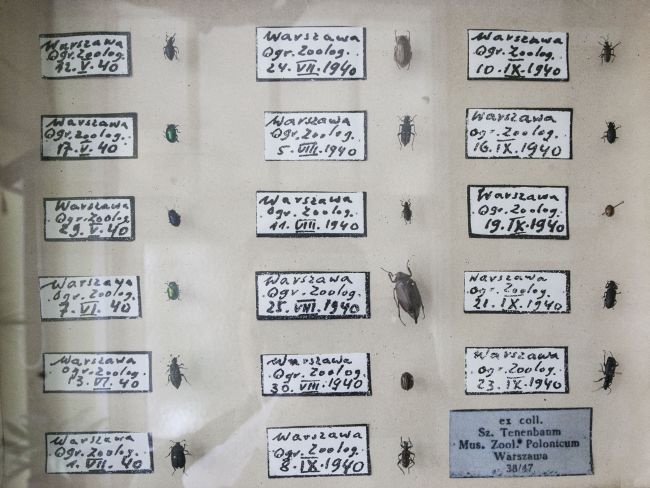 Warszawa
Ogr. Zoolog.
12. V. 40
Warszawa
Ogr. Zoolog.
17. V. 40
Warszawa
Ogr. Zoolog.
29. V. 40
Warszawa
Ogr. Zoolog.
7. VI. 40
Warszawa
Ogr. Zoolog.
13. VI. 40
Warszawa
Ogr. Zoolog.
1. VII. 40
Warszawa
Ogr. Zoolog.
24. VII. 1940
Warszawa
Ogr. Zoolog.
5. VIII. 1940
Warszawa
Ogr. Zoolog.
11. VIII. 1940
Warszawa
Ogr. Zoolog.
25. VIII. 1940
Warszawa
Ogr. Zoolog.
30. VIII. 1940
Warszawa
Ogr. Zoolog.
8. IX. 1940
Warszawa
Ogr. Zoolog.
10. IX. 1940
Warszawa
Ogr. Zoolog.
16. IX. 1940
Warszawa
Ogr. Zoolog.
19. IX. 1940
Warszawa
Ogr. Zoolog.
21. IX. 1940
Warszawa
Ogr. Zoolog.
23. IX. 1940
ex coll.
Sz. Tenenbaum
Mus. Zool. Polonicum
Warszawa
38/47